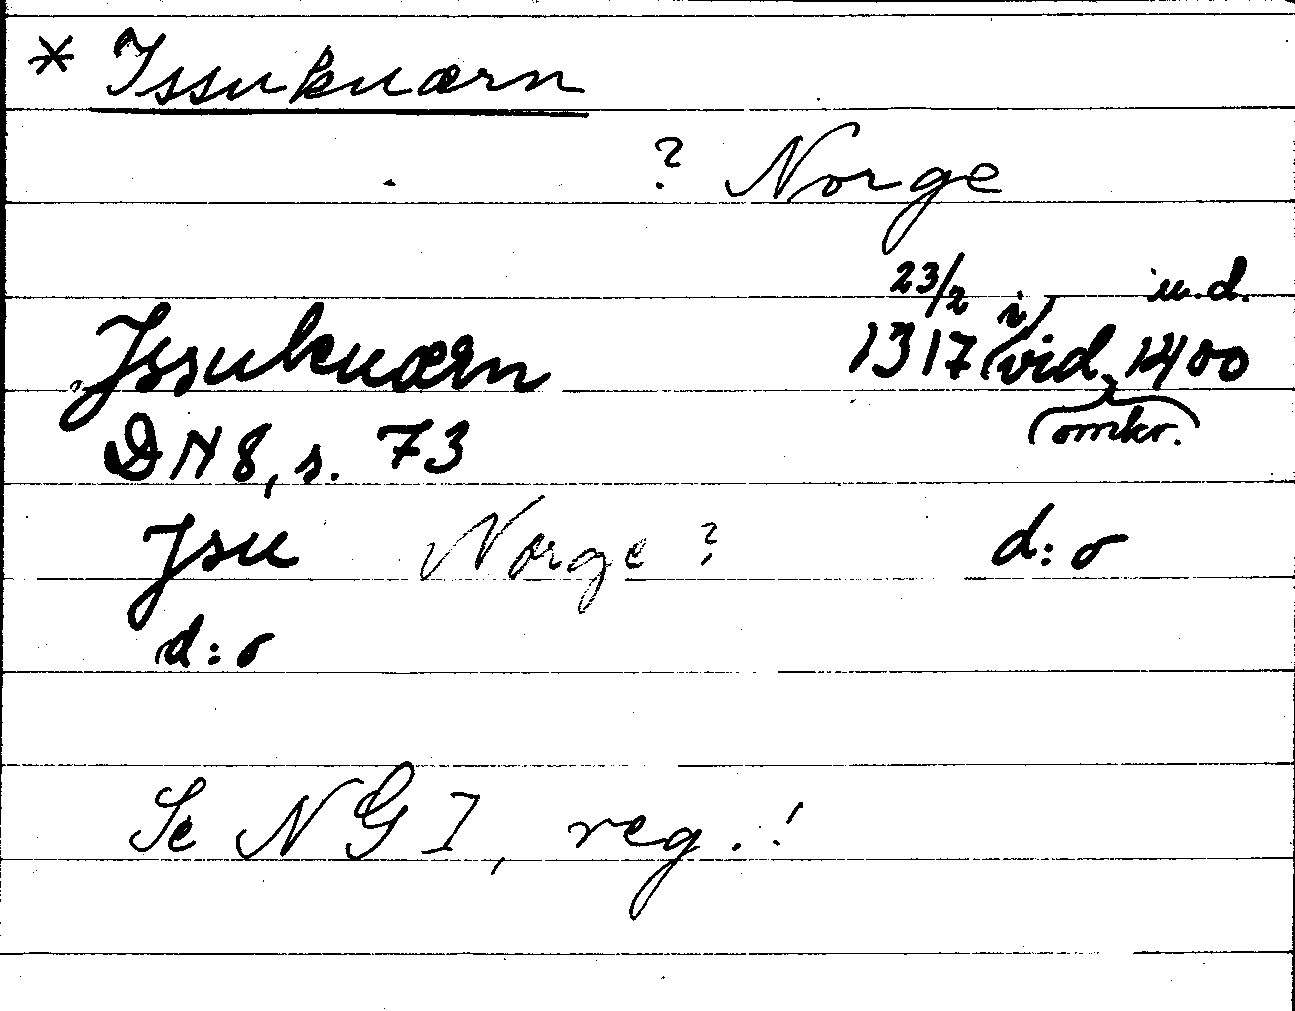 * Issukuærn
? Norge
23/2 i u.d.
Jssukuærn 1317 (vid. 1400
DN 8, s. 73 omkr.
Jsu Norge? d:o
d:o
Se NG I, reg.!